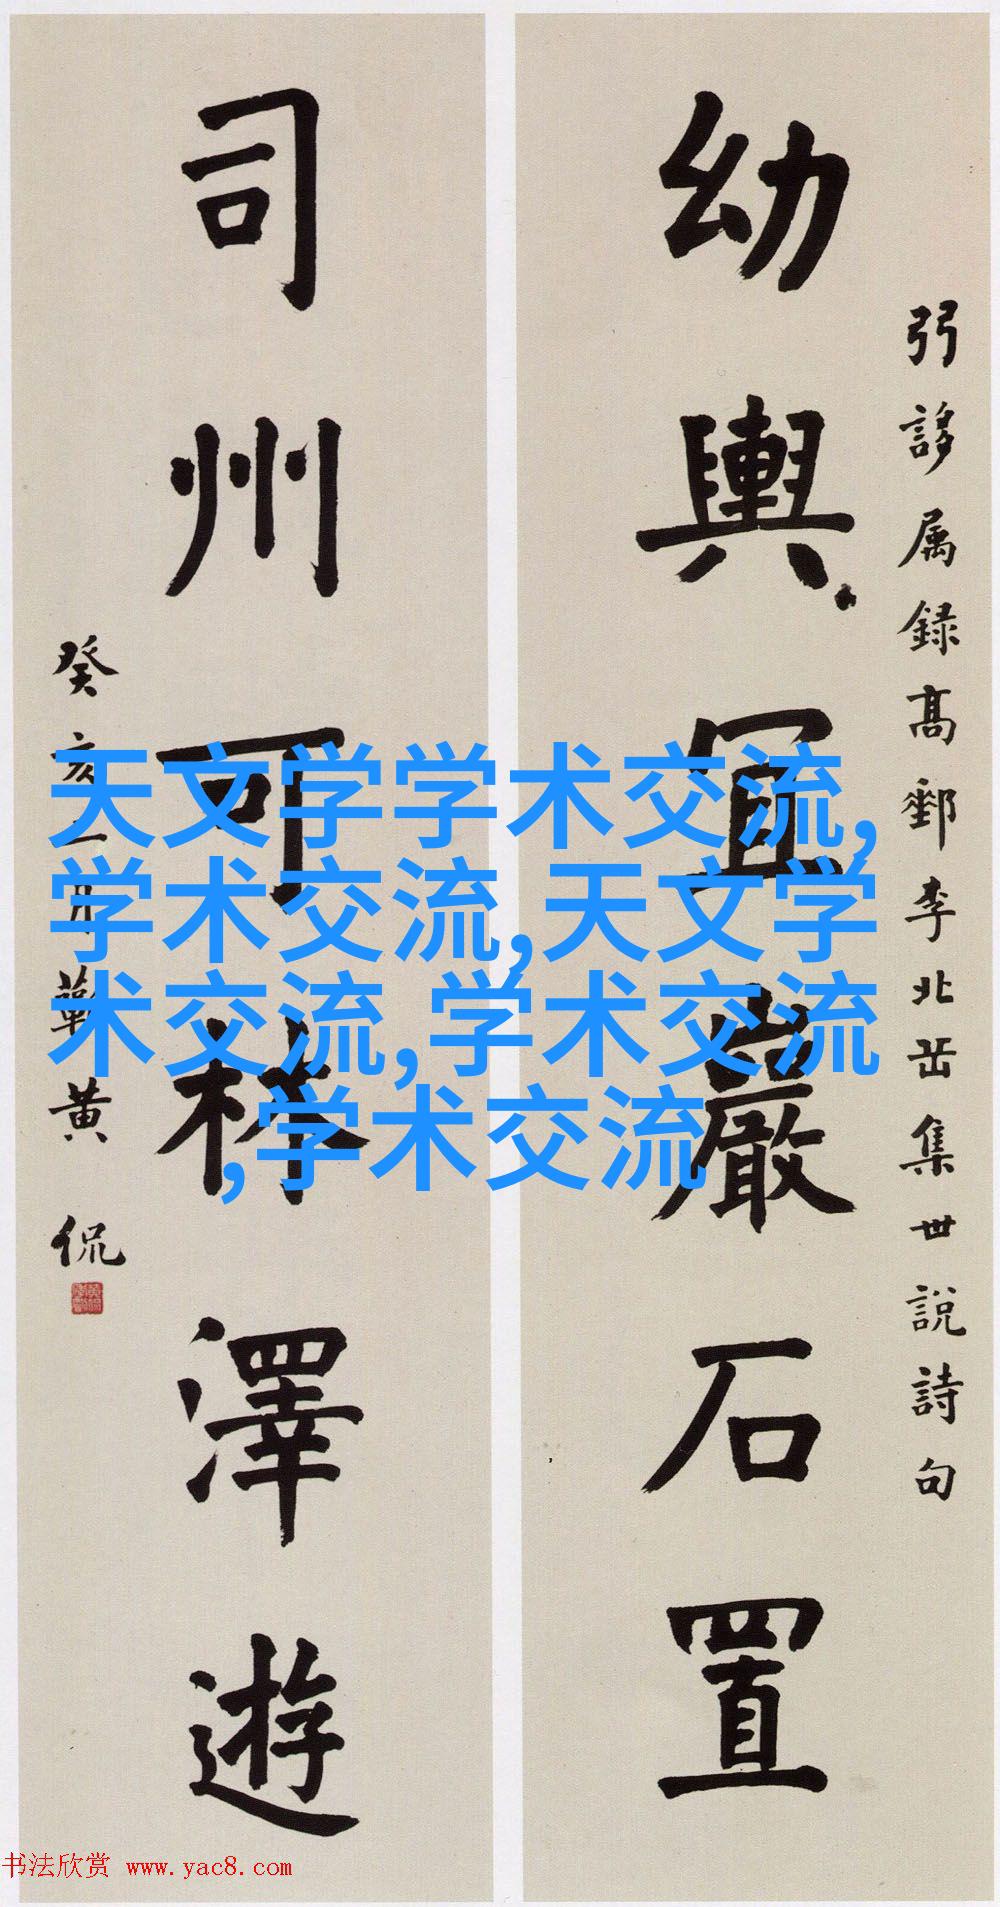 弱誃属録高郵李北岳集世說詩句
幼輿宜巖石置
司州可林澤遊
癸亥二月蘄黄侃
天文学学术交流,
学术交流,天文学
术交流,学术交流
,学术交流
书法欣赏 www.yac8.com